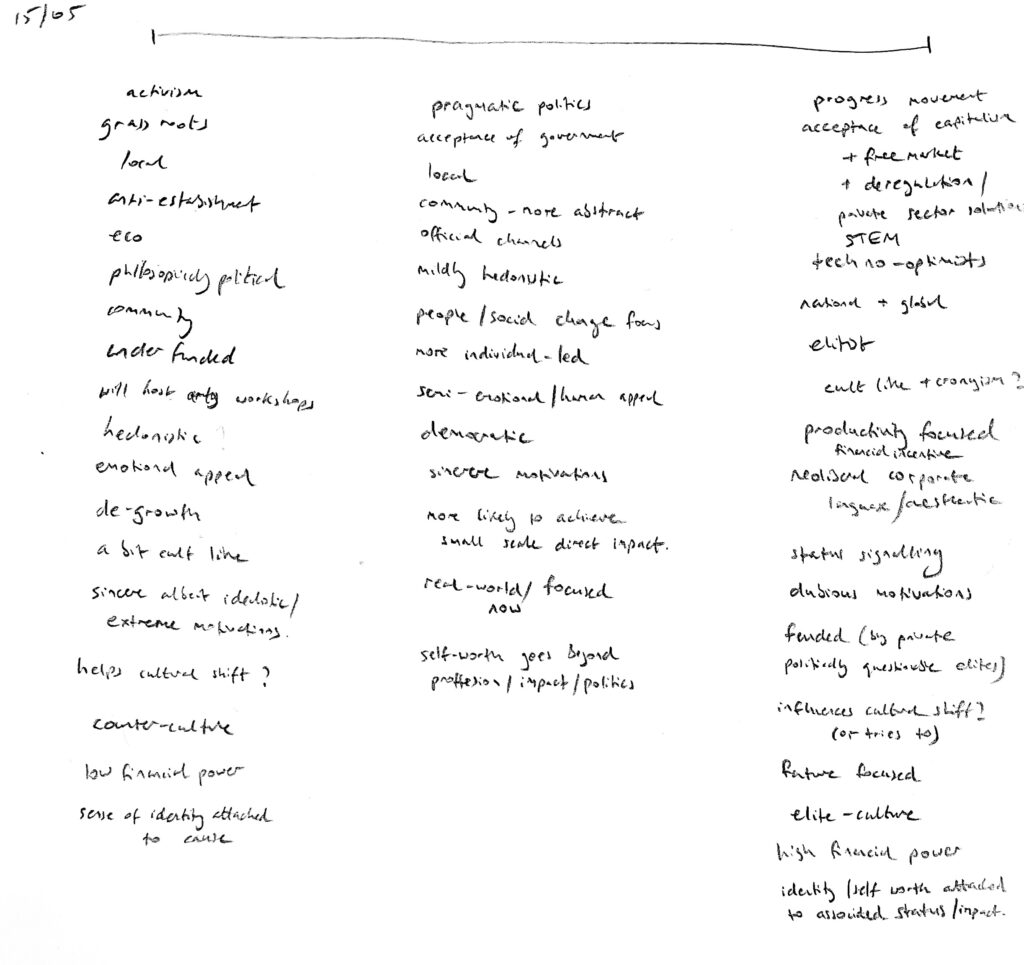 15/05
activism
grass roots
local
anti-establishment
eco
philosophically political
community
under funded
will host workshops
hedonistic ?
emotional appeal
de-growth
a bit cult like
sincere albeit idealistic/
extreme motivations.
helps cultural shift ?
counter-culture
low financial power
sense of identity attached
to cause
pragmatic politics
acceptance of government
local
community - more abstract
official channels
mildly hedonistic
people / social change focus
more individual-led
semi-emotional/human appeal
democratic
sincere motivations
more likely to achieve
small scale direct impact.
real-world/ focused
now
self-worth goes beyond
proffesion / impact / politics
progress movement
acceptance of capitalism
+ free market
+ deregulation /
private sector solutions
STEM
techno-optimists
national + global
elitist
cult like + cronyism ?
productivity focused
financial incentive
neoliberal corporate
language /aesthetic
status signalling
dubious motivations
funded (by private
politically questionable elites)
influences cultural shift?
(or tries to)
future focused
elite-culture
high financial power
identity /self worth attached
to associated status /impact.